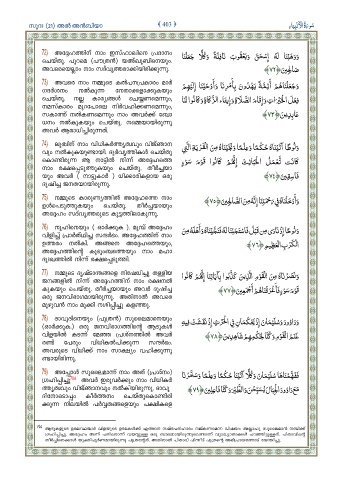 സൂറ (21) അൽ അൻബിയാ
﴾ 403 ﴿
سورة الأنبياء
72) അദ്ദേഹത്തിന് നാം ഇസ്ഹാഖിനെ പ്രദാനം
ചെയ്തു. പുറമെ (പൗത്രൻ) യഅ്ഖൂബിനെയും.
അവരെയെല്ലാം നാം സദ്‌വൃത്തരാക്കിയിരിക്കുന്നു.
وَوَهَبْنَا لَهُ إِسْحَقَ وَيَعْقُوبَ نَافِلَةً وَكُلًّا جَعَلْنَا
صَالِحِينَ ﴿٧٢﴾
73) അവരെ നാം നമ്മുടെ കൽപനപ്രകാരം മാർ
ഗദർശനം നൽകുന്ന നേതാക്കളാക്കുകയും
ചെയ്തു. നല്ല കാര്യങ്ങൾ ചെയ്യണമെന്നും,
നമസ്കാരം മുറപോലെ നിർവഹിക്കണമെന്നും,
സകാത്ത് നൽകണമെന്നും നാം അവർക്ക് ബോ
ധനം നൽകുകയും ചെയ്തു. നമ്മെയായിരുന്നു
അവർ ആരാധിച്ചിരുന്നത്.
وَجَعَلْنَاهُمْ أَئِمَّةً يَهْدُونَ بِأَمْرِنَا وَأَوْحَيْنَا إِلَيْهِمْ
فِعْلَ الْخَيْرَاتِ وَإِقَامَ الصَّلَاةِ وَإِيتَاءَ الزَّكَاةِ وَكَانُوا لَنَا
عَابِدِينَ ﴿٧٣﴾
74) ലൂത്തിന് നാം വിധികർതൃത്വവും വിജ്ഞാന
വും നൽകുകയുണ്ടായി. ദുർവൃത്തികൾ ചെയ്തു
കൊണ്ടിരുന്ന ആ നാട്ടിൽ നിന്ന് അദ്ദേഹത്തെ
നാം രക്ഷപ്പെടുത്തുകയും ചെയ്തു. തീർച്ചയാ
യും അവർ ( നാട്ടുകാർ ) ധിക്കാരികളായ ഒരു
ദുഷിച്ച ജനതയായിരുന്നു.
وَلُوطًا آتَيْنَاهُ حُكْمًا وَعِلْمًا وَنَجَّيْنَاهُ مِنَ الْقَرْيَةِ الَّتِي
كَانَت تَّعْمَلُ الْخَبَائِثَ إِنَّهُمْ كَانُوا قَوْمَ سَوْءٍ
فَاسِقِينَ ﴿٧٤﴾
75) നമ്മുടെ കാരുണ്യത്തിൽ അദ്ദേഹത്തെ നാം
ഉൾപെടുത്തുകയും ചെയ്തു. തീർച്ചയായും
അദ്ദേഹം സദ്‌വൃത്തരുടെ കൂട്ടത്തിലാകുന്നു.
وَأَدْخَلْنَاهُ فِي رَحْمَتِنَا إِنَّهُ مِنَ الصَّالِحِينَ ﴿٧٥﴾
76) നൂഹിനെയും ( ഓർക്കുക ). മുമ്പ് അദ്ദേഹം
വിളിച്ച് പ്രാർത്ഥിച്ച സന്ദർഭം. അദ്ദേഹത്തിന് നാം
ഉത്തരം നൽകി. അങ്ങനെ അദ്ദേഹത്തെയും,
അദ്ദേഹത്തിന്റെ കുടുംബത്തെയും നാം മഹാ
ദുഃഖത്തിൽ നിന്ന് രക്ഷപ്പെടുത്തി.
وَنُوحًا إِذْ نَادَى مِن قَبْلُ فَاسْتَجَبْنَا لَهُ فَنَجَّيْنَاهُ وَأَهْلَهُ مِنَ
الْكَرْبِ الْعَظِيمِ ﴿٧٦﴾
77) നമ്മുടെ ദൃഷ്ടാന്തങ്ങളെ നിഷേധിച്ചു തള്ളിയ
ജനങ്ങളിൽ നിന്ന് അദ്ദേഹത്തിന് നാം രക്ഷനൽ
കുകയും ചെയ്തു. തീർച്ചയായും അവർ ദുഷിച്ച
ഒരു ജനവിഭാഗമായിരുന്നു. അതിനാൽ അവരെ
മുഴുവൻ നാം മുക്കി നശിപ്പിച്ചു കളഞ്ഞു.
وَنَصَرْنَاهُ مِنَ الْقَوْمِ الَّذِينَ كَذَّبُوا بِآيَاتِنَا إِنَّهُمْ كَانُوا
قَوْمَ سَوْءٍ فَأَغْرَقْنَاهُمْ أَجْمَعِينَ ﴿٧٧﴾
78) ദാവൂദിനെയും (പുത്രൻ) സുലൈമാനെയും
(ഓർക്കുക.) ഒരു ജനവിഭാഗത്തിന്റെ ആടുകൾ
വിളയിൽ കടന്ന് മേഞ്ഞ പ്രശ്നത്തിൽ അവർ
രണ്ട് പേരും വിധികൽപിക്കുന്ന സന്ദർഭം.
അവരുടെ വിധിക്ക് നാം സാക്ഷ്യം വഹിക്കുന്നു
ണ്ടായിരുന്നു.
وَدَاوُودَ وَسُلَيْمَانَ إِذْ يَحْكُمَانِ فِي الْحَرْثِ إِذْ نَفَشَتْ فِيهِ
غَنَمُ الْقَوْمِ وَكُنَّا لِحُكْمِهِمْ شَاهِدِينَ ﴿٧٨﴾
79) അപ്പോൾ സുലൈമാന് നാം അത് (പ്രശ്നം)
ഗ്രഹിപ്പിച്ചു അവർ ഇരുവർക്കും നാം വിധികർ
തൃത്വവും വിജ്ഞാനവും നൽകിയിരുന്നു. ദാവൂ
ദിനോടൊപ്പം കീർത്തനം ചെയ്തുകൊണ്ടിരി
ക്കുന്ന നിലയിൽ പർവ്വതങ്ങളെയും പക്ഷികളെ
فَفَهَّمْنَاهَا سُلَيْمَانَ وَكُلًّا آتَيْنَا حُكْمًا وَعِلْمًا وَسَخَّرْنَا
مَعَ دَاوُودَ الْجِبَالَ يُسَبِّحْنَ وَالطَّيْرَ وَكُنَّا فَاعِلِينَ ﴿٧٩﴾